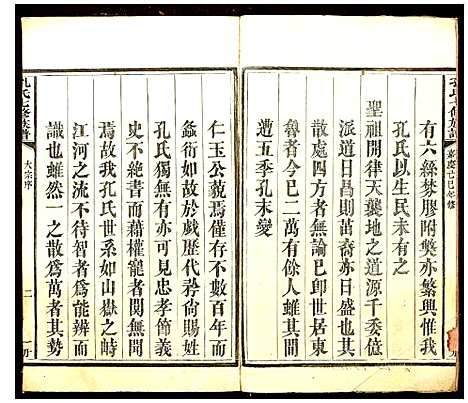 孔氏七修族譜
嘉慶己巳年修
有六絲棼膠附獘亦繁興惟我
孔氏以生民未有之
聖祖開律天襲地之道源千委億
派道日昌則苗裔亦日盛也其
散處四方者無論已卽世居東
魯者今已二萬有餘人雖其間
遭五季孔末變
仁玉公藐焉僅存不數百年而
螽衍如故於戲歷代荷賜姓
孔氏獨無有亦可見忠孝節義
史不絕書而藉權寵者闃無聞
焉故我孔氏世系如山嶽之峙
江河之流不待智者爲能辨而
識也雖然一之散爲萬者其勢
孔氏七修族譜
大宗序
二